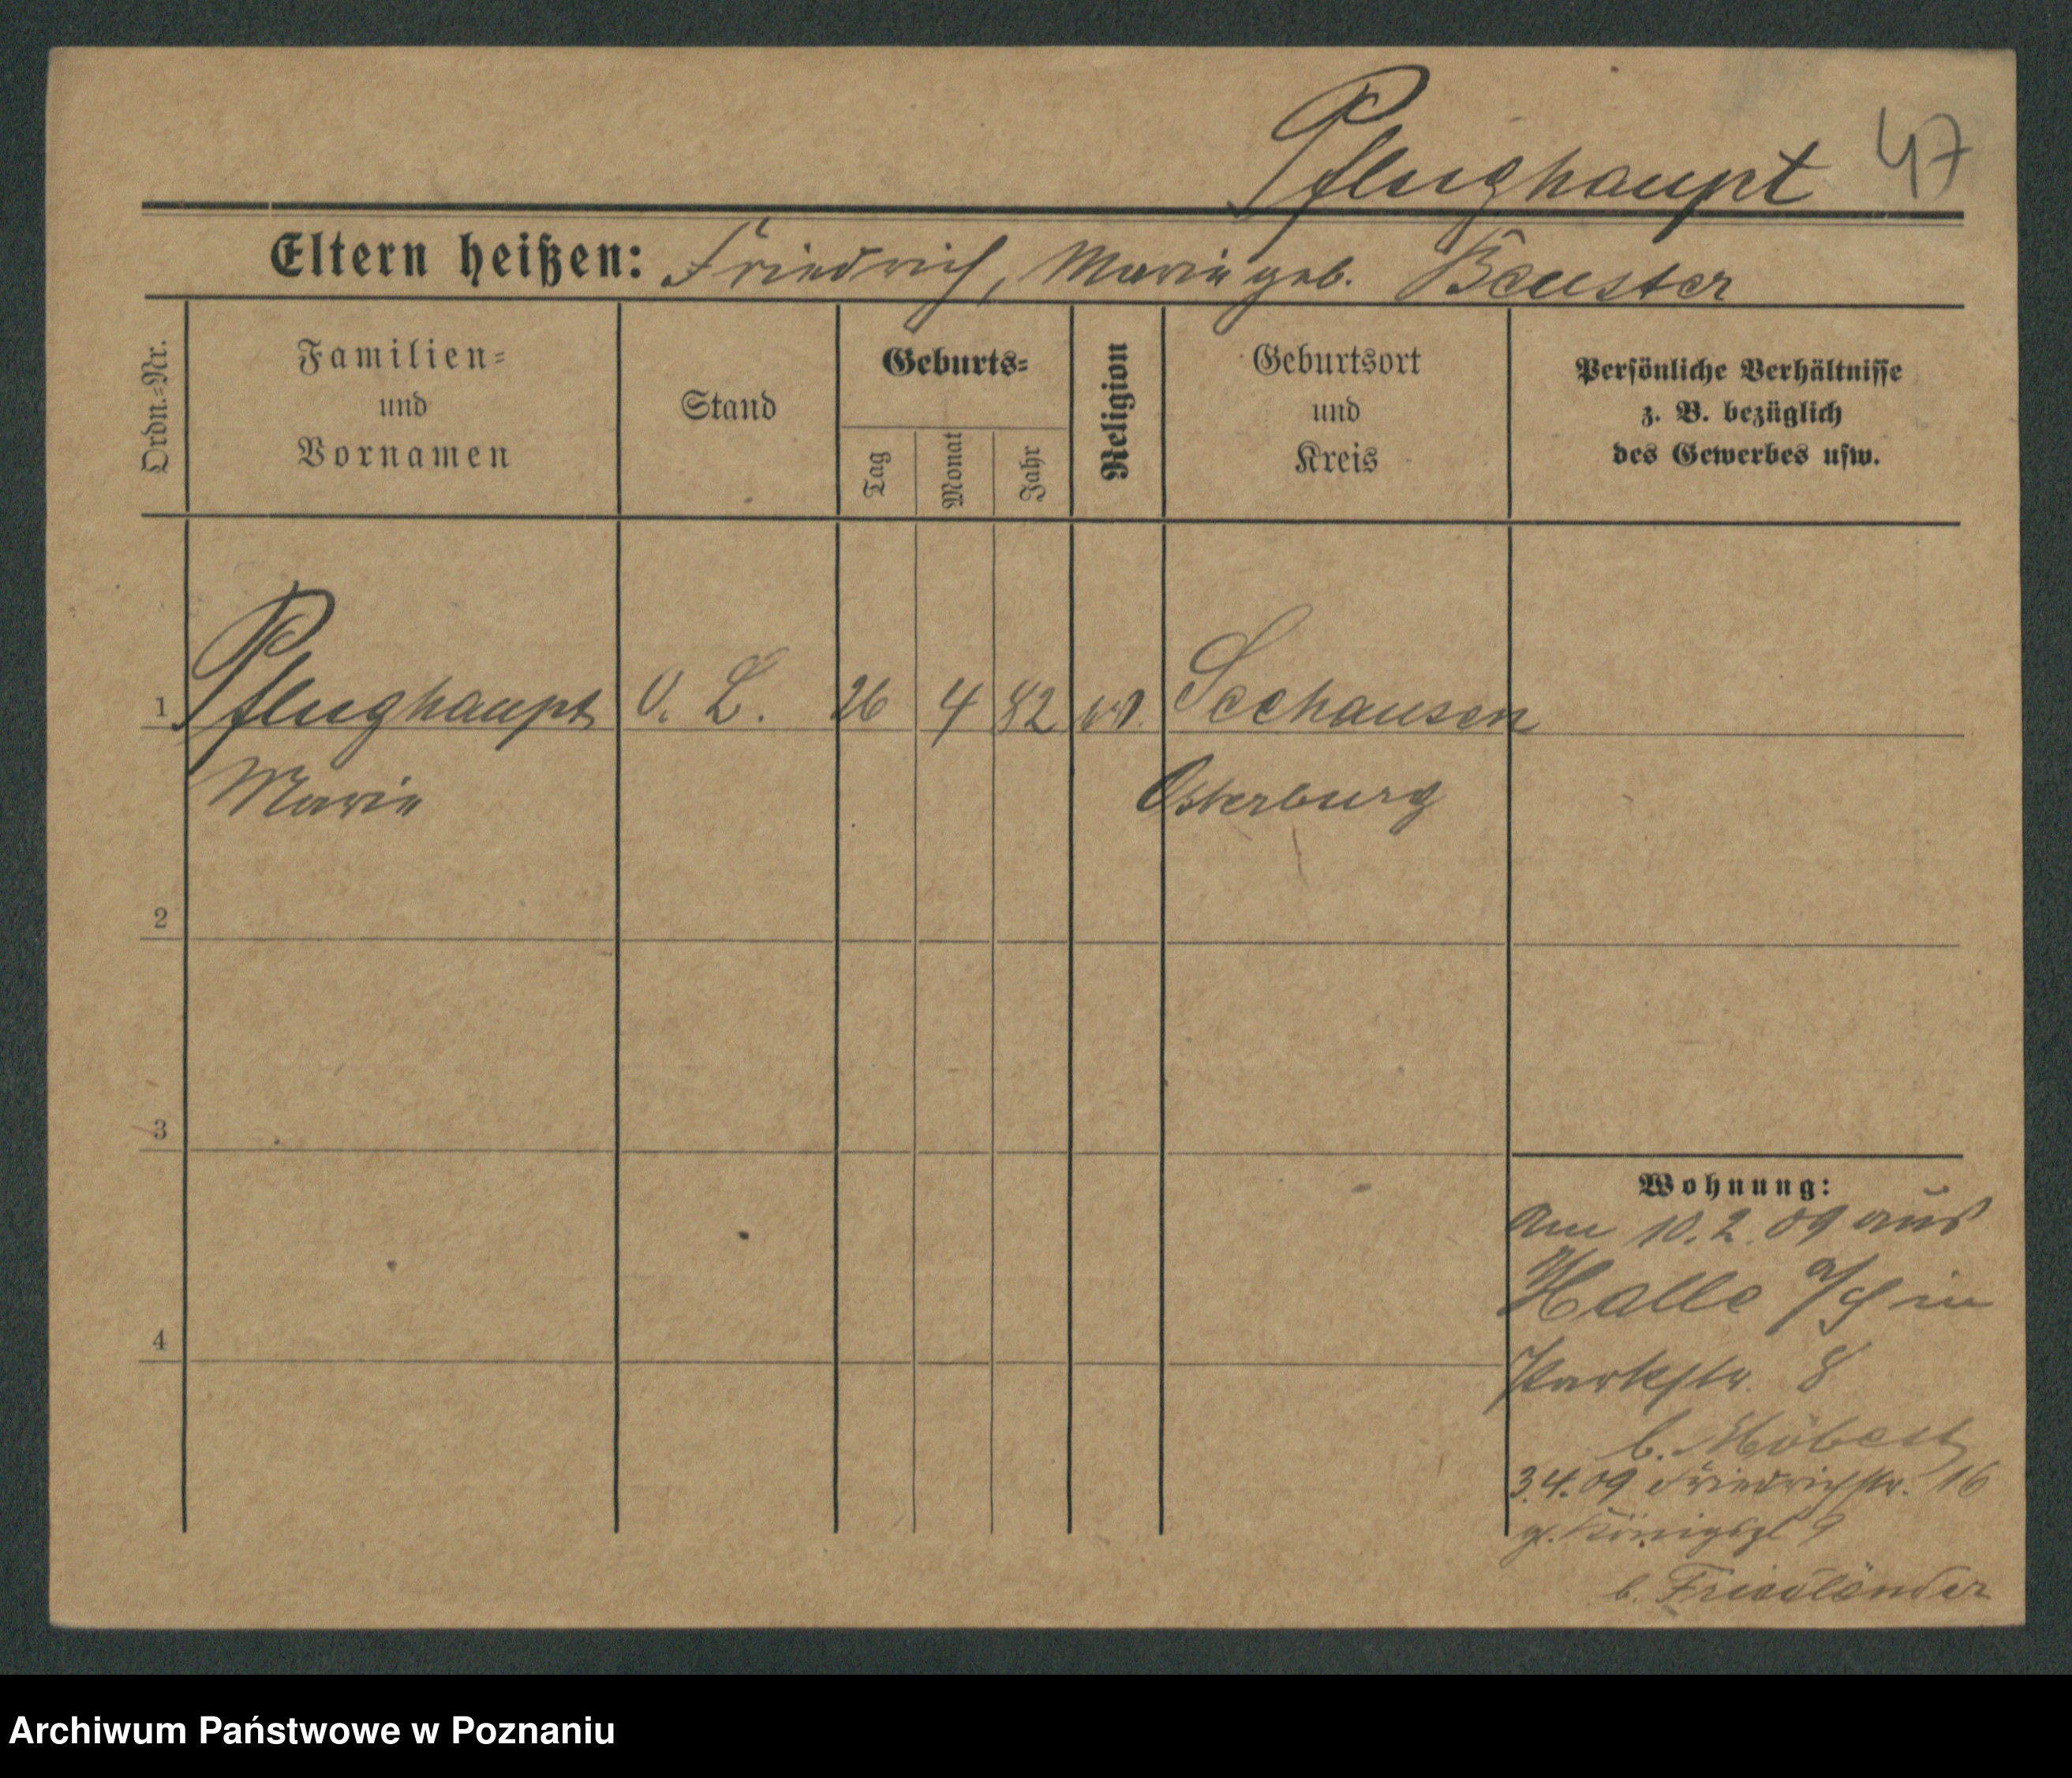 Pflughaupt 47
Eltern heißen: Friedrich, Marie geb. Beuster
Ordn.=Nr.
Familien=
und
Vornamen
Stand
Geburts=
Tag
Monat
Jahr
Religion
Geburtsort
und
Kreis
Persönliche Verhältnisse
z. B. bezüglich
des Gewerbes usw.
1 Pflughaupt O. L. 26 4 82 ev. Seehausen
Marie Osterburg
2
3
4
Wohnung:
Am 10.2.09 aus
Halle a/S in
Parkstr. 8
b.
3.4.09 Friedrichstr. 16
Königspl 9
b. Friedländer
Archiwum Państwowe w Poznaniu